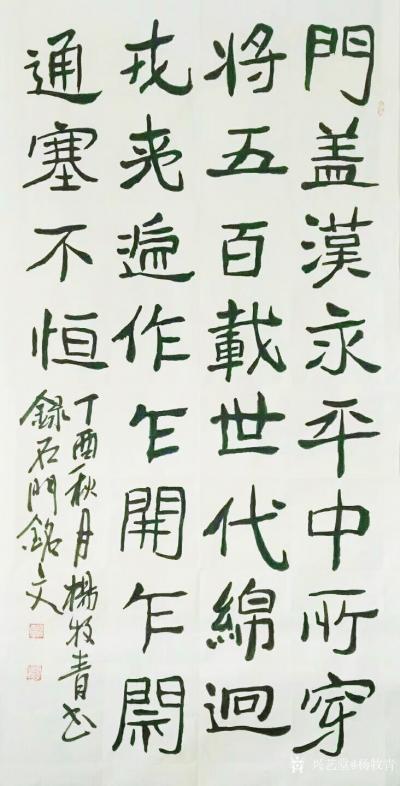 門盖漢永平中所穿
将五百載世代綿迴
戎夷逓作乍開乍閇
通塞不恒
丁酉秋月楊牧青书
録石門銘文
兴艺堂@杨牧青